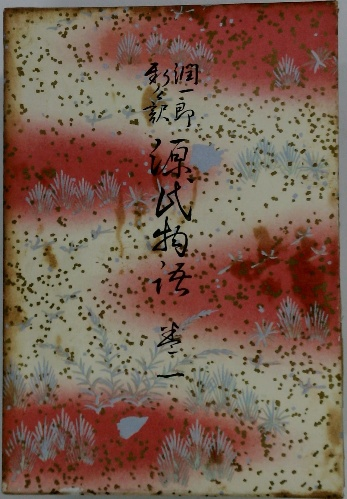 潤一郎
新々訳
源氏物語
巻一